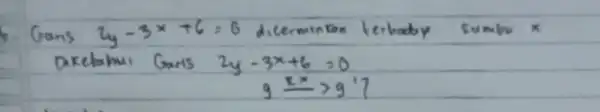 Garis 2y - 3x + 6 = 0 dicerminkan terhadap sumbu x
Diketahui Garis 2y - 3x + 6 = 0
g →(Rx) g'?